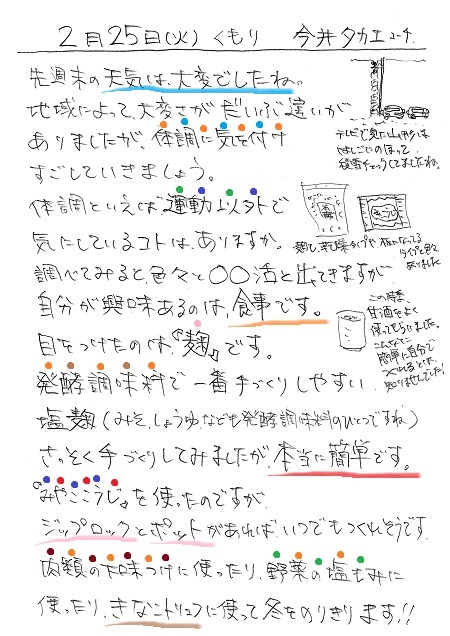 2月25日(火) くもり 今井タカエコーチ.
先週末の天気は、大変でしたね。
地域によって、大変さが だいぶ違いが
ありましたが、体調に気を付け
すごしていきましょう。
体調といえば運動以外で
気にしているコトは、ありますか。
調べてみると、色々と〇〇活と出てきますが
自分が興味あるのは、食事です。
目をつけたのは、『麹』です。
発酵調味料で一番手づくりしやすい
塩麹(みそ、しょうゆなども発酵調味料のひとつですね)
さっそく手づくりしてみましたが、本当に簡単です。
『みやここうじ』を使ったのですが、
ジップロックとポットがあれば、いつでもつくれそうです
肉類の下味つけに使ったり、野菜の塩もみに
使ったり、きなこトリュフに使って冬をのりきります!!
テレビで見た山形は
はしごにのぼって
積雪チェックしてましたね。
この時季、
甘酒をよく
使ってもらいました。
こんなに
簡単に自分で
つくれるとは、
知りませんでした!